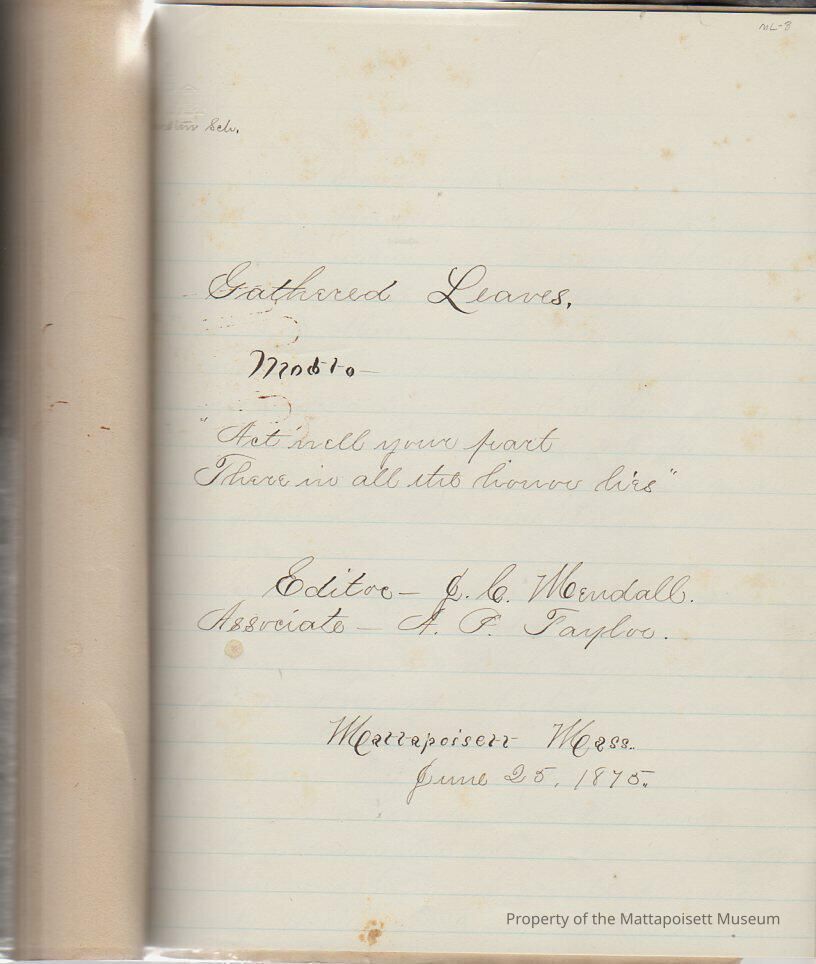 ML-8
Sch.
Gathered Leaves,
Motto
"Act well your part
There in all the honor lies"
Editor - J. C. Mendall.
Associate - A. P. Taylor.
Mattapoisett Mass.
June 25, 1875.
Property of the Mattapoisett Museum